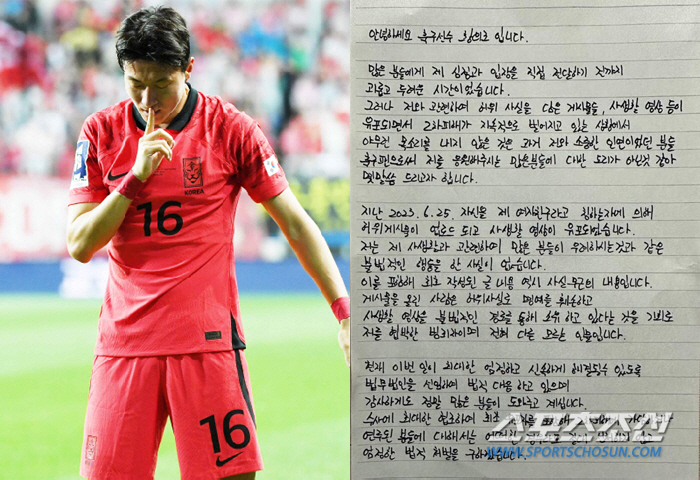 KOREA
16
16
안녕하세요 축구선수 황의조 입니다.
많은 분들에게 제 심정과 입장을 직접 전달하기 전까지
괴롭고 두려운 시간이었습니다.
그러나 저와 관련하여 허위 사실을 담은 게시물들, 사생활 영상 등이
유포되면서 2차피해가 지속적으로 벌어지고 있는 상황에서
아무런 목소리를 내지 않은 것은 과거 저와 소중한 인연이었던 분들
축구팬으로써 저를 응원해주시는 많은분들에 대한 도리가 아닌것 같아
몇말씀 드리고자 합니다.
지난 2023.6.25. 자신을 제 여자친구라고 칭하는자에 의해
허위게시물이 업로드 되고 사생활 영상이 유포되었습니다.
저는 제 사생활과 관련하여 많은 분들이 우려하시는것과 같은
불법적인 행동을 한 사실이 없습니다.
이를 포함해 최초 작성된 글 내용 역시 사실무근의 내용입니다.
게시물을 올린 사람은 허위사실로 명예를 훼손하고
사생활 영상을 불법적인 경로를 통해 소유 하고 있다는 것을 기회로
저를 협박한 범죄자이며 전혀 다를 모르는 인물입니다.
현재 이번 일이 최대한 엄정하고 신속하게 해결될수 있도록
법무법인을 선임하여 법적 대응 하고 있으며
감사하게도 정말 많은 분들이 도와주고 계십니다.
수사에 최대한 협조하여 최초
연루된 분들에 대해서는 어떠한
엄정한 법적 처벌을 구하겠습니다.
스포츠조선
WWW.SPORTSCHOSUN.COM